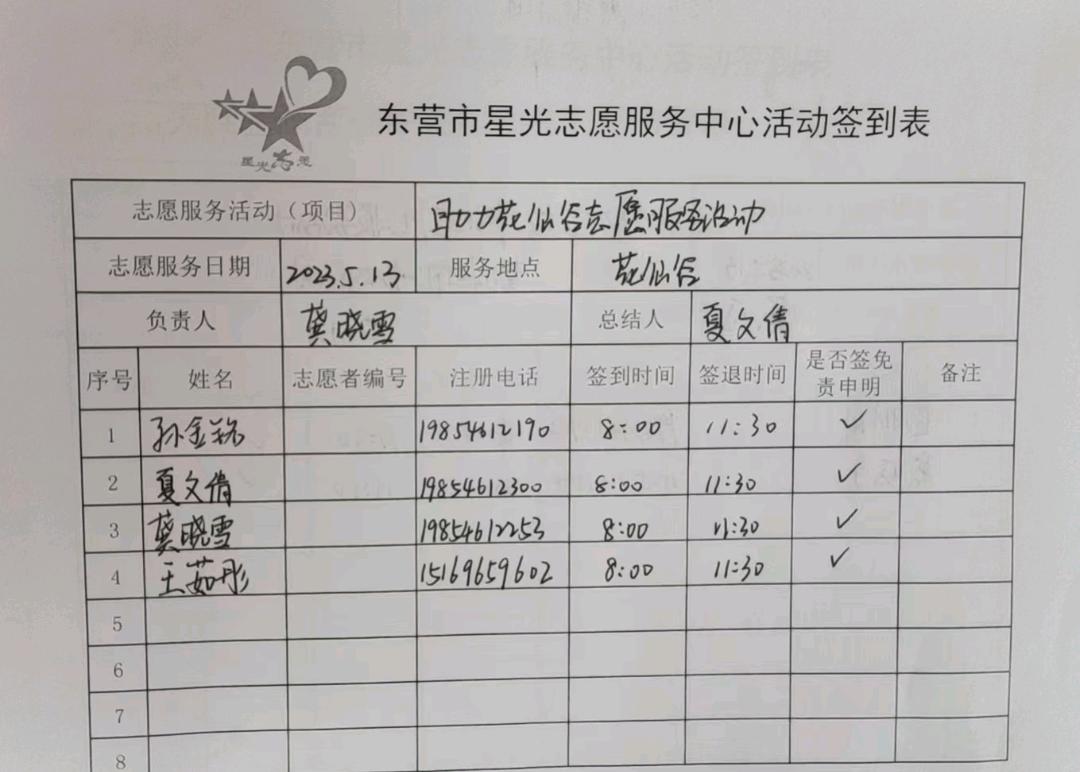 星光志愿
东营市星光志愿服务中心活动签到表
志愿服务活动（项目） 助力花仙谷志愿服务活动
志愿服务日期 2023.5.13 服务地点 花仙谷
负责人 龚晓雪 总结人 夏文倩
序号 姓名 志愿者编号 注册电话 签到时间 签退时间 是否签免责申明 备注
1 孙金铭 19854612190 8:00 11:30 ✓
2 夏文倩 19854612300 8:00 11:30 ✓
3 龚晓雪 19854612253 8:00 11:30 ✓
4 王茹彤 15169659602 8:00 11:30 ✓
5
6
7
8